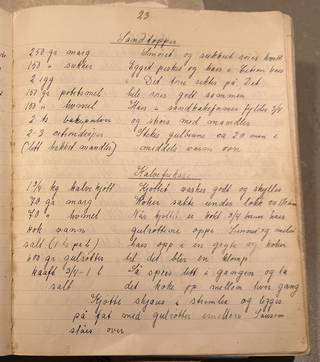 23
Sandtopper
250 gr marg Smøret og sukkeret røres hvitt
150 " sukker Egget piskes og has i
2 egg Det røres Det
150 gr potetmel hele røres godt sammen
150 " hvetmel Has i sandkakeformer fylles 3/4
2 ts bakepulver og strøs med mandler
2-3 Stekes gulbrune ca 20 min i
(litt hakket mandler) middels varm ovn
Kalvefrikassé
1 1/4 kg kalvekjøtt Kjøttet vaskes godt og skylles
70 gr marg Koker sakte under lokk
70 " hvetmel Når kjøttet er kokt 3/4 has
kok vann gulrøttene oppi Smør og mel
salt has opp i en gryte og koker
400 gr gulrøtter til det blir en klump
kraft 3/4-1 l Så spes litt i gangen og la
salt det koke opp mellem hver gang
Kjøtte skjæres i strimler og legges
på fat med gulrøtter Sausen
slåes over